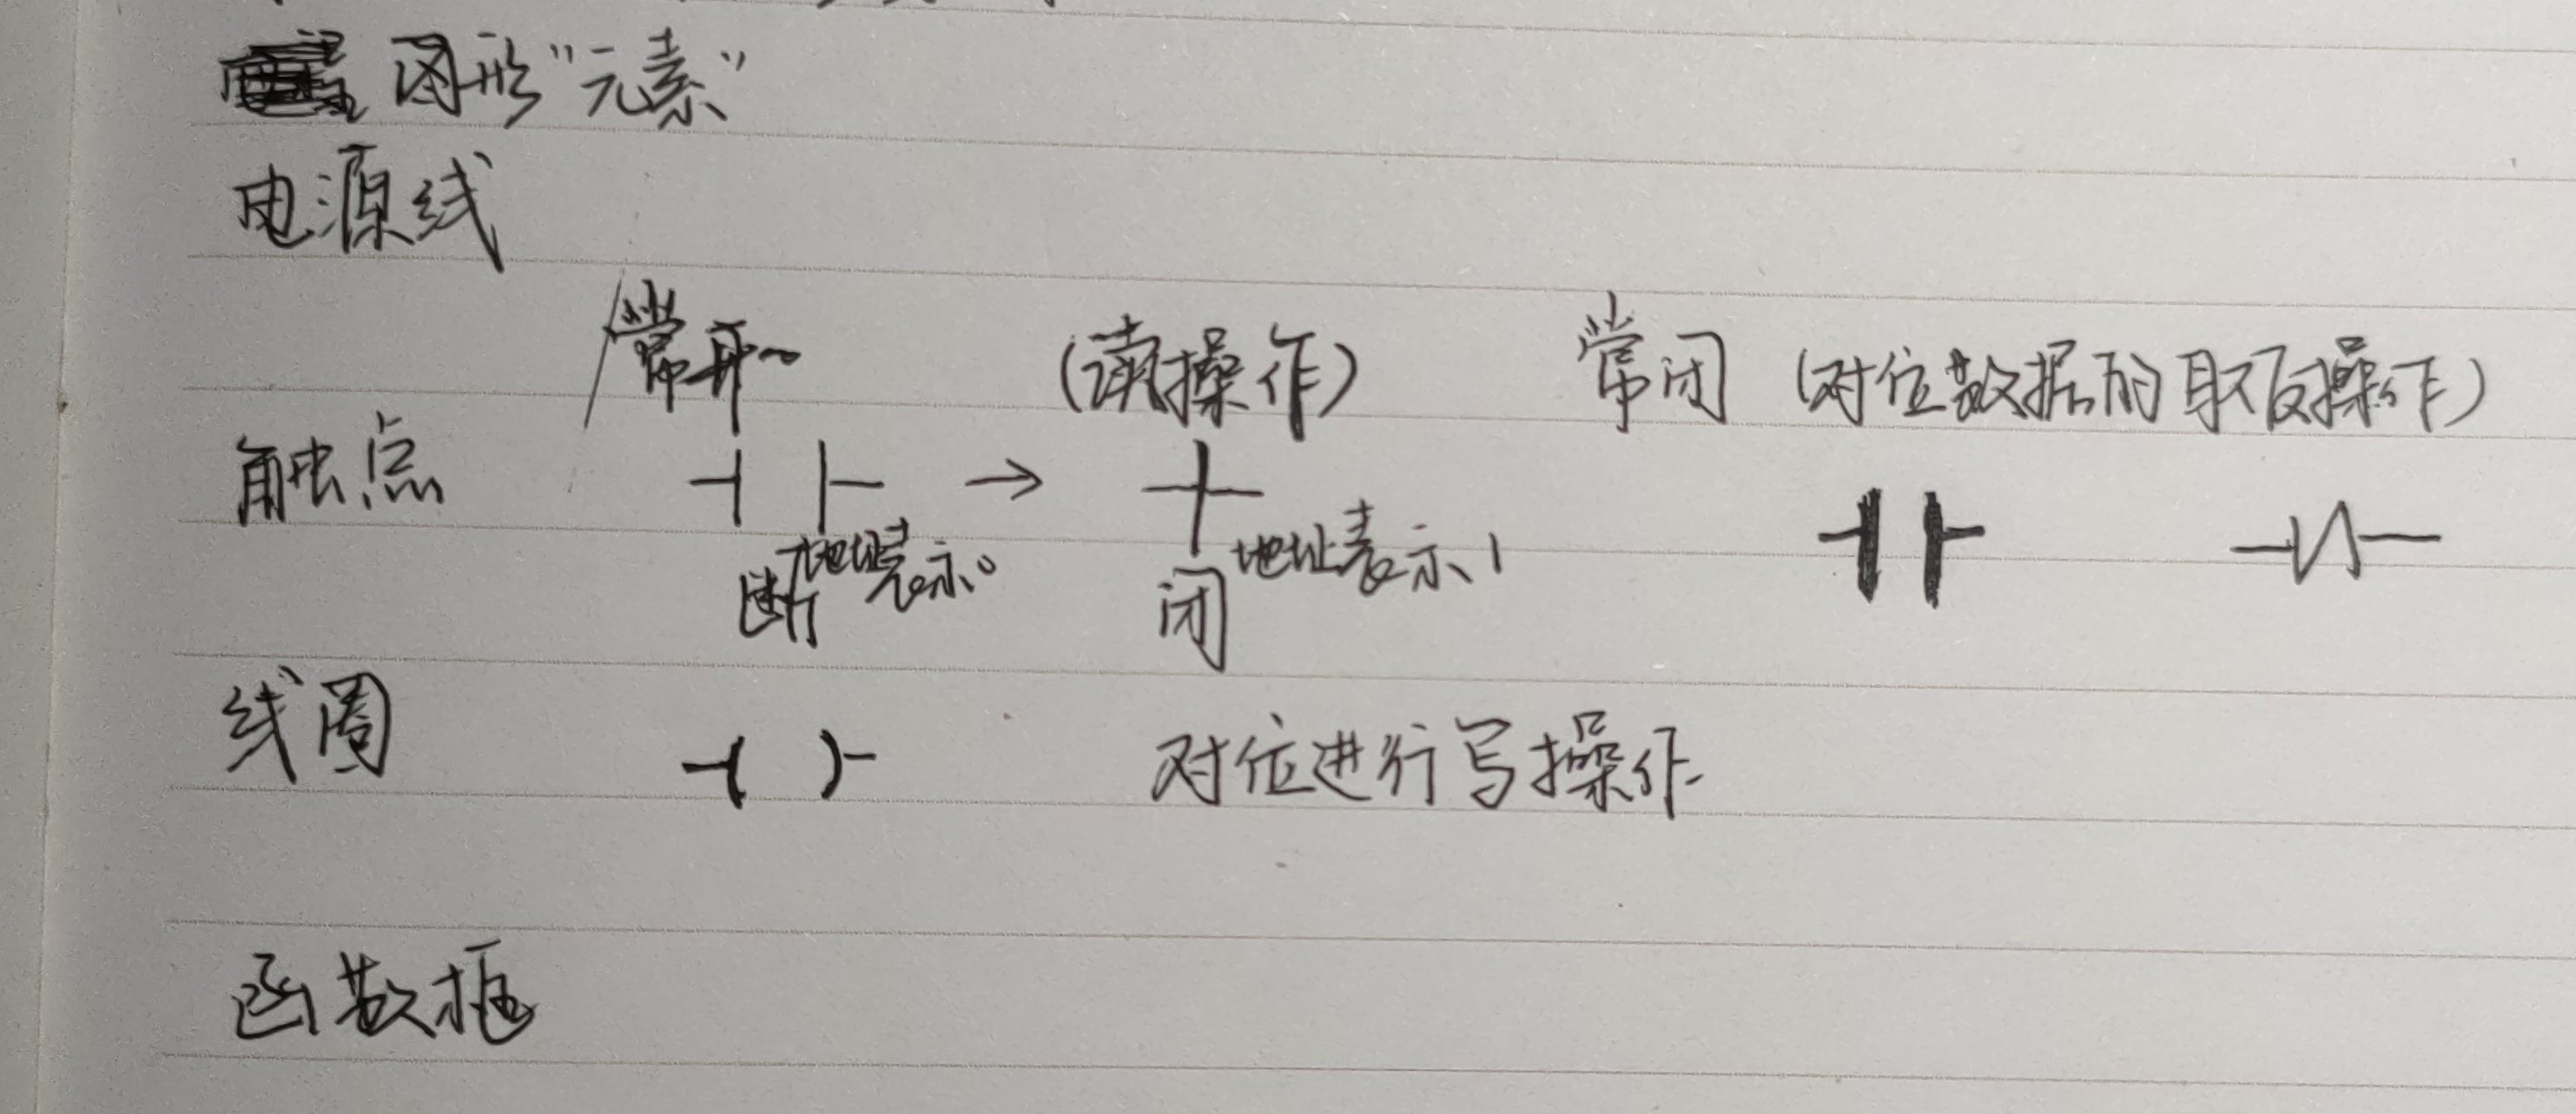 图形“元素”
电源线
常开 (读操作) 常闭 (对位数据的取反操作)
触点 →
断 地址表示0 闭 地址表示1
线圈 对位进行写操作
函数框